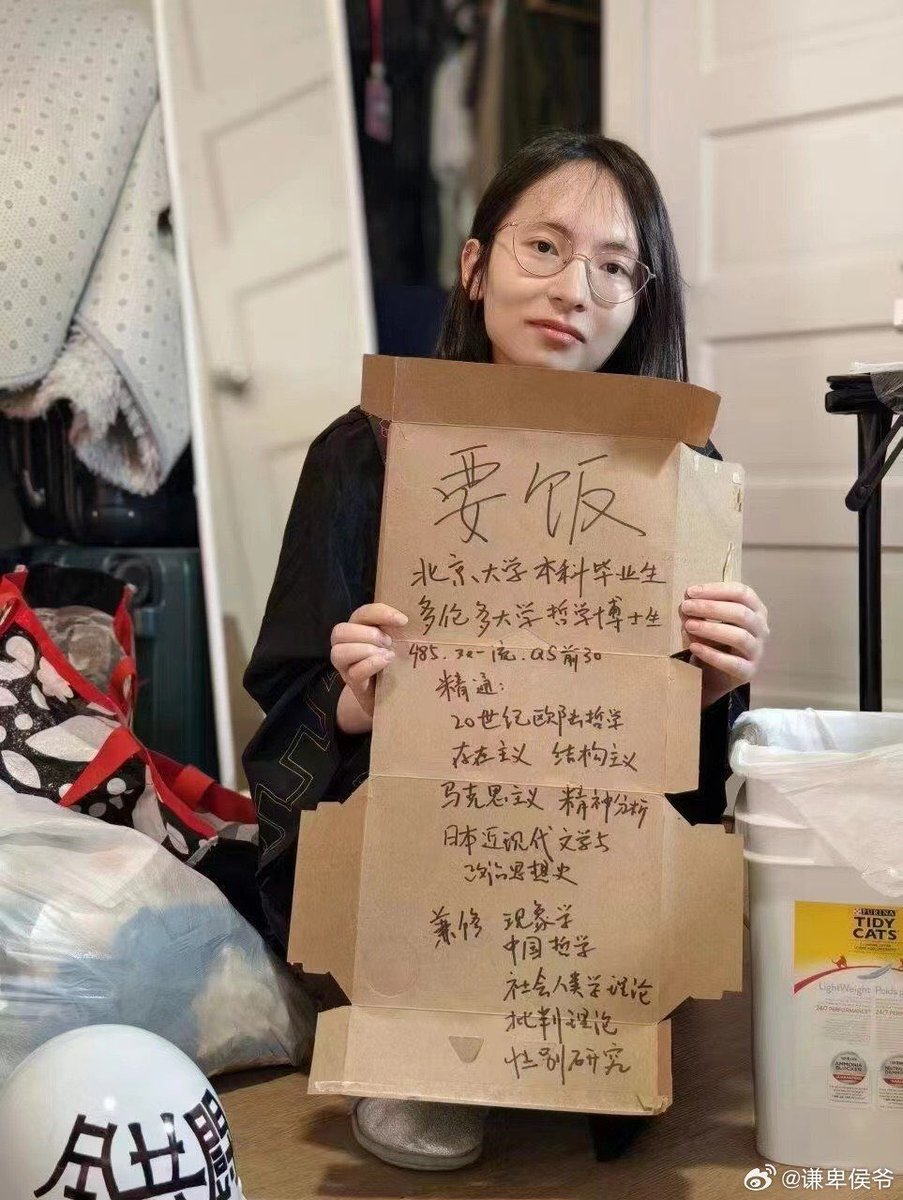 要饭
北京大学本科毕业生
多伦多大学哲学博士生
985.双一流.QS前30
精通:
20世纪欧陆哲学
存在主义 结构主义
马克思主义 精神分析
日本近现代文学与
政治思想史
兼修 现象学
中国哲学
社会人类学理论
批判理论
性别研究
PURINA
TIDY
CATS
LightWeight
24/7 PERFORMANCE
AMMONIA
BLOCKER
@谦卑侯爷